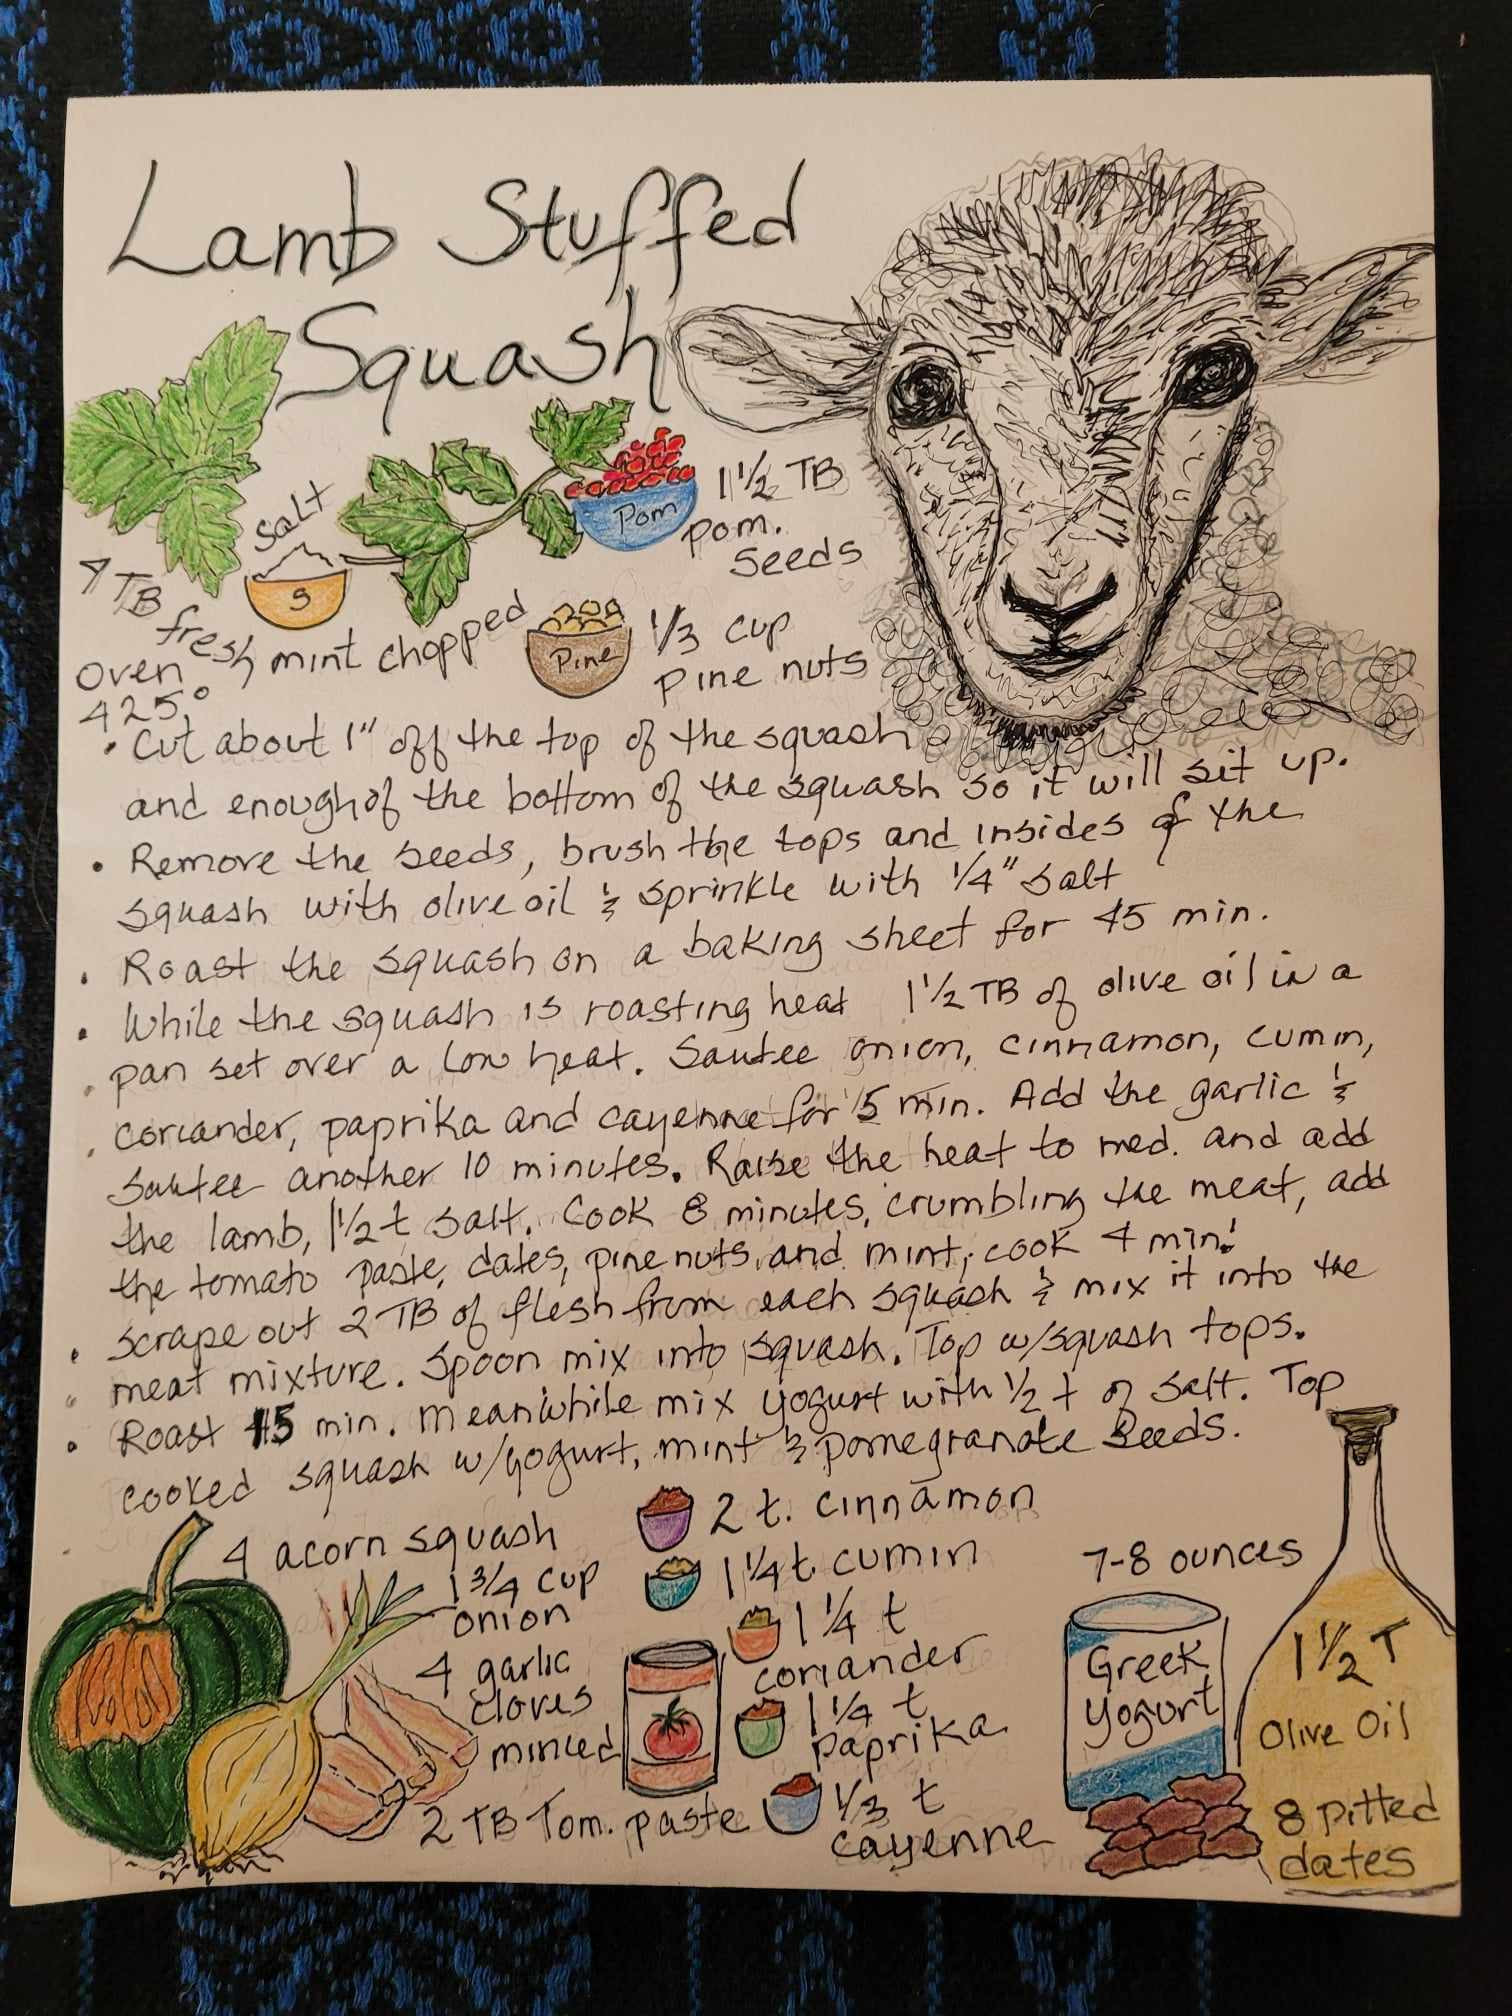 Lamb Stuffed
Squash
Salt
S
Pom
1 1/2 TB
pom.
seeds
4 TB
fresh mint chopped
Pine
1/3 cup
pine nuts
oven
425°
• Cut about 1" off the top of the squash
and enough of the bottom of the squash so it will sit up.
• Remove the seeds, brush the tops and insides of the
squash with olive oil & sprinkle with 1/4" salt
• Roast the squash on a baking sheet for 45 min.
• While the squash is roasting heat 1 1/2 TB of olive oil in a
pan set over a low heat. Sautee onion, cinnamon, cumin,
coriander, paprika and cayenne for 15 min. Add the garlic &
sautee another 10 minutes. Raise the heat to med. and add
the lamb, 1 1/2 t salt. Cook 8 minutes, crumbling the meat, add
the tomato paste, dates, pine nuts, and mint, cook 4 min.
• Scrape out 2 TB of flesh from each squash & mix it into the
meat mixture. Spoon mix into squash. Top w/squash tops.
• Roast 15 min. Meanwhile mix yogurt with 1/2 t of salt. Top
cooked squash w/yogurt, mint & pomegranate seeds.
4 acorn squash
1 3/4 cup
onion
4 garlic
cloves
minced
2 TB Tom. paste
2 t. cinnamon
1 1/4 t. cumin
1 1/4 t
coriander
1 1/4 t
paprika
1/3 t
cayenne
7-8 ounces
Greek
yogurt
1 1/2 T
Olive Oil
8 pitted
dates